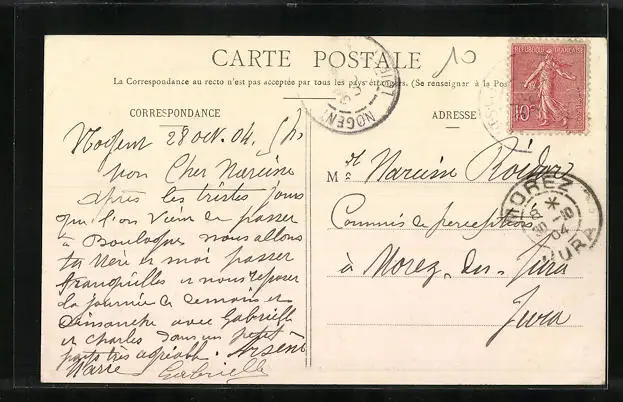 CARTE POSTALE
10
La Correspondance au recto n'est pas acceptée par tous les pays étrangers. (Se renseigner à la Pos
CORRESPONDANCE
ADRESSE
REPUBLIQUE FRANÇAISE
10c
NOGENT
Nogent 28 oct. 04.
Mon Cher Narcisse
après les tristes jours
que l'on vient de passer
à Boulogne nous allons
ta Mère et moi passer
tranquilles et nous reposer
la journée de demain et
Dimanche avec Gabrielle
et Charles dans un petit
pays très agréable. Arsène
Marie Gabrielle
M r Narcisse
Commis de perception
à Morez-du-Jura
Jura
MOREZ
04
JURA